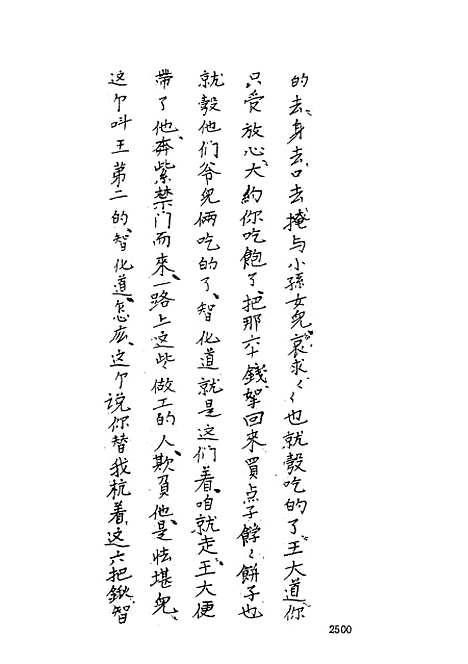 的去、身去、口去、掩与小孫女兒、哀求〻、也就彀吃的了、王大道、你
只受放心、大約你吃飽了、把那六十錢、拏回來、買点子餑〻餅子、也
就彀他们爷兒俩吃的了、智化道、就是这们着、咱就走、王大便
帶了他、奔紫禁门而來、一路上这些做工的人、欺負他、是怯堪兒、
这个叫王第二的、智化道、怎広、这个说、你替我杭着、这六把鍬、智
2500